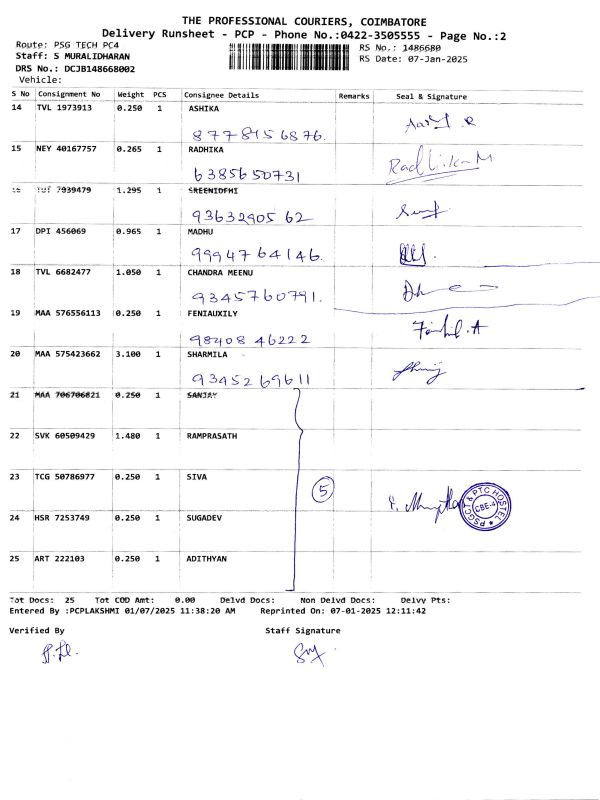 THE PROFESSIONAL COURIERS, COIMBATORE
Delivery Runsheet - PCP - Phone No.:0422-3505555 - Page No.:2
Route: PSG TECH PC4
RS No.: 1486680
Staff: S MURALIDHARAN
RS Date: 07-Jan-2025
DRS No.: DCJB148668002
Vehicle:
S No Consignment No Weight PCS Consignee Details Remarks Seal & Signature
14 TVL 1973913 0.250 1 ASHIKA
8778456876.
15 NEY 40167757 0.265 1 RADHIKA
6385650731
Radhika M
7939479 1.295 1 SREENIDHI
9363290562
17 DPI 456069 0.965 1 MADHU
9994764146.
18 TVL 6682477 1.050 1 CHANDRA MEENU
9345760791.
19 MAA 576556113 0.250 1 FENIAUXILY
98408 46222
20 MAA 575423662 3.100 1 SHARMILA
9345269611
21 MAA 706706821 0.250 1 SANJAY
22 SVK 60509429 1.480 1 RAMPRASATH
23 TCG 50786977 0.250 1 SIVA
5
PSGCT & PTC HOSTEL
CBE-4
24 HSR 7253749 0.250 1 SUGADEV
25 ART 222103 0.250 1 ADITHYAN
Tot Docs: 25 Tot COD Amt: 0.00 Delvd Docs: Non Delvd Docs: Delvy Pts:
Entered By :PCPLAKSHMI 01/07/2025 11:38:20 AM Reprinted On: 07-01-2025 12:11:42
Verified By Staff Signature